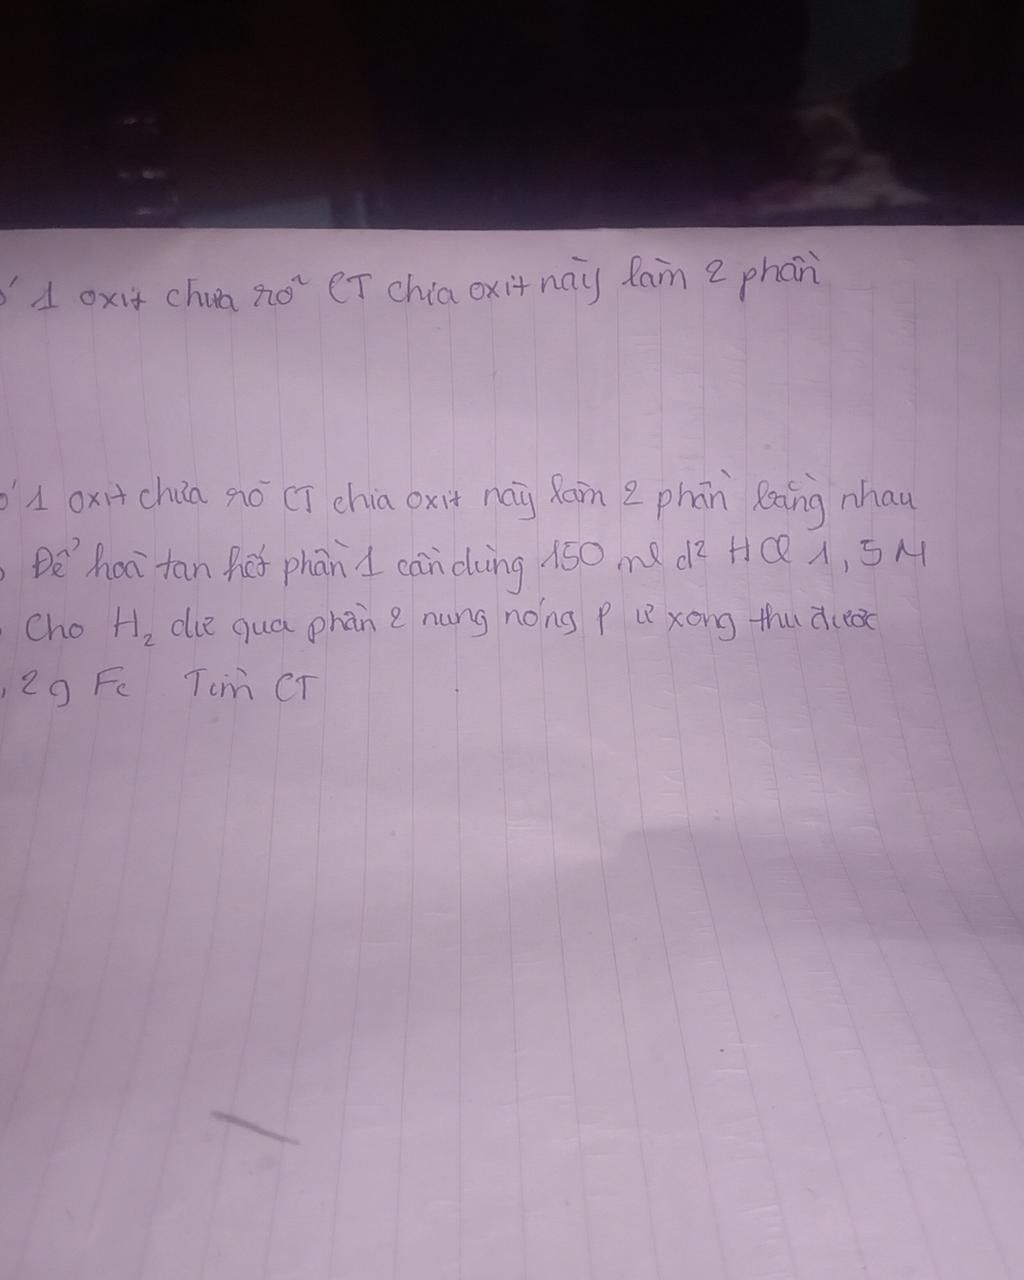 1 oxit chưa rõ CT chia oxit này làm 2 phần
1 oxit chưa rõ CT chia oxit này làm 2 phần bằng nhau
Để hoà tan hết phần 1 cần dùng 150 ml d² HCl 1,5M
Cho H₂ dư qua phần 2 nung nóng p ư xong thu được
,2g Fe Tìm CT